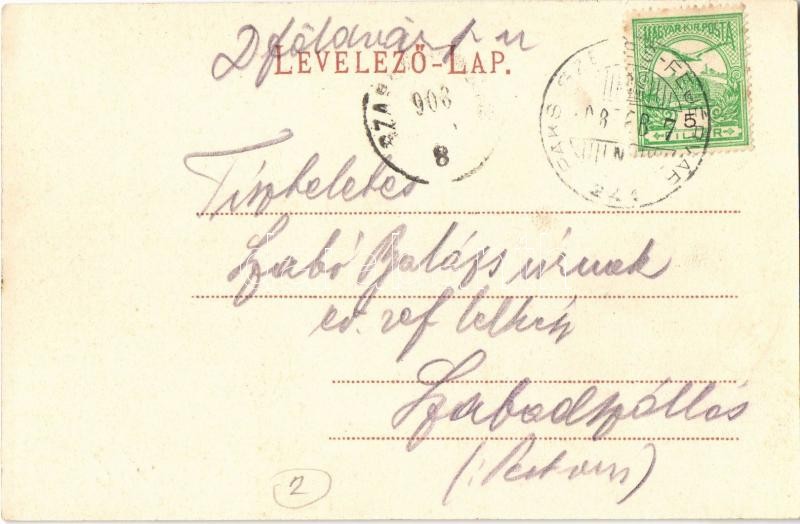 Dföldvár
LEVELEZŐ-LAP.
MAGYAR KIR. POSTA
5
FILLÉR
908
8
PAKS
172
Tiszteletes
Szabó Balázs úrnak
ev. ref lelkész
Szabadszállás
(: Pest m)
2